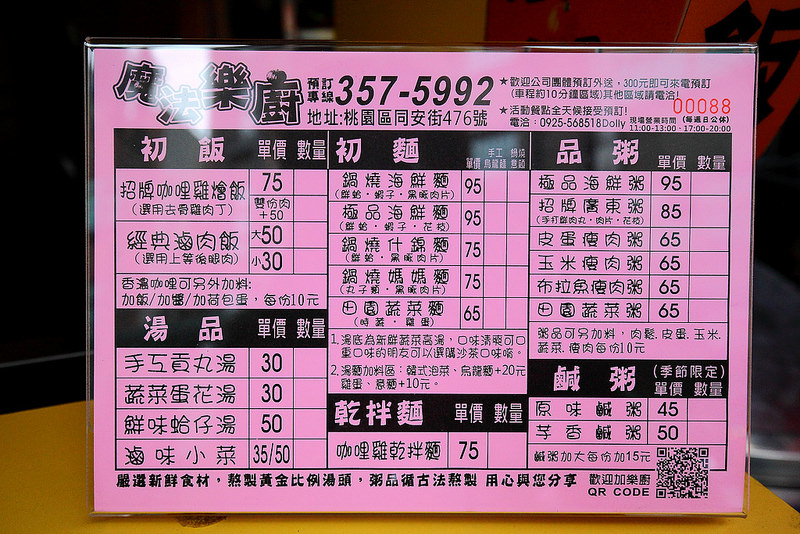 魔法樂廚
預訂專線 357-5992
地址:桃園區同安街476號
★歡迎公司團體預訂外送，300元即可來電預訂
(車程約10分鐘區域)其他區域請電洽!
★活動餐點全天候接受預訂!
電洽：0925-568518Dolly
00088
現場營業時間 (每週日公休)
11:00-13:00、17:00-20:00
初飯 單價 數量
招牌咖哩雞燴飯 75
(選用去骨雞肉丁) 雙份肉+50
經典滷肉飯 大50
(選用上等後腿肉) 小30
香濃咖哩可另外加料:
加飯/加蛋/加荷包蛋，每份10元
湯品 單價 數量
手工貢丸湯 30
蔬菜蛋花湯 30
鮮味蛤仔湯 50
滷味小菜 35/50
初麵 單價 手工烏龍麵 鍋燒意麵
鍋燒海鮮麵 95
(鮮蛤、蝦子、黑豚肉片)
極品海鮮麵 95
(鮮蛤、蝦子、花枝)
鍋燒什錦麵 75
(鮮蛤、黑豚肉片)
鍋燒媽媽麵 75
(丸子類、黑豚肉片)
田園蔬菜麵 65
(時蔬、雞蛋)
1.湯底為新鮮蔬菜高湯，口味清爽可口
重口味的朋友可以選購沙茶口味唷。
2.湯麵加料區：韓式泡菜、烏龍麵+20元
雞蛋、意麵+10元。
乾拌麵 單價 數量
咖哩雞乾拌麵 75
品粥 單價 數量
極品海鮮粥 95
招牌廣東粥 85
(手打鮮肉丸、肉片、花枝)
皮蛋瘦肉粥 65
玉米瘦肉粥 65
布拉魚瘦肉粥 65
田園蔬菜粥 65
粥品可另加料，肉鬆.皮蛋.玉米.
蔬菜.瘦肉每份10元
鹹粥 (季節限定)
單價 數量
原味鹹粥 45
芋香鹹粥 50
鹹粥加大每份加15元
嚴選新鮮食材，熬製黃金比例湯頭，粥品循古法熬製 用心與您分享
歡迎加樂廚
QR CODE